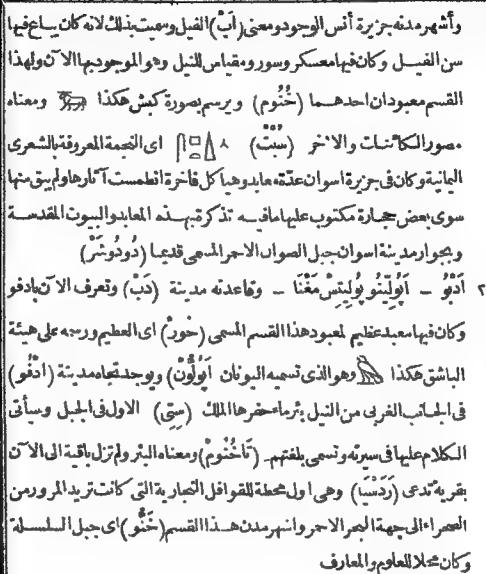 وأشهر مدنه جزيرة أنس الوجود ومعنى (اَبْ) الفيل وسميت بذلك لانه كان يباع فيها
سن الفيل وكان فيها معسكر وسور ومقياس للنيل وهو الموجود بها الآن ولهذا
القسم معبودان احدهما (خُنُوم) ويرسم بصورة كبش هكذا ومعناه
مصور الكائنات والاخر (سُبْتْ) اى النجمة المعروفة بالشعرى
اليمانية وكان فى جزيرة اسوان عدّة معابد وهياكل فاخرة انطمست آثارها ولم يبق منها
سوى بعض حجارة مكتوب عليها مافيه تذكرة بهذه المعابد والبيوت المقدسة
وبجوار مدينة اسوان جبل الصوان الاحمر المسمى قديما (دُودُوشَرْ)
٢ اَدْبُو – اَبُولِّينُو بُولِيتِسْ مَغْنَا – وقاعدته مدينة (دَبْ) وتعرف الآن بادفو
وكان فيها معبد عظيم لمعبود هذا القسم المسمى (حُورْ) اى العظيم ورسمه على هيئة
الباشق هكذا وهو الذى تسميه اليونان اَبُولُّونْ) ويوجد تجاه مدينة (ادْفُو)
فى الجانب الغربى من النيل بئر ماء حفرها الملك (سِتِى) الاول فى الجبل وسيأتى
الكلام عليها فى سيرته وتسمى بلغتهم (تَاخُنُومْ) ومعناه البئر ولم تزل باقية الى الآن
بقرية تدعى (رَدَسْيَا) وهى اول محطة للقوافل التجارية التى كانت تريد المرور من
الصحراء الى جهة البحر الاحمر واشهر مدن هذا القسم (خَنُّو) اى جبل السلسلة
وكان محلا للعلوم والمعارف